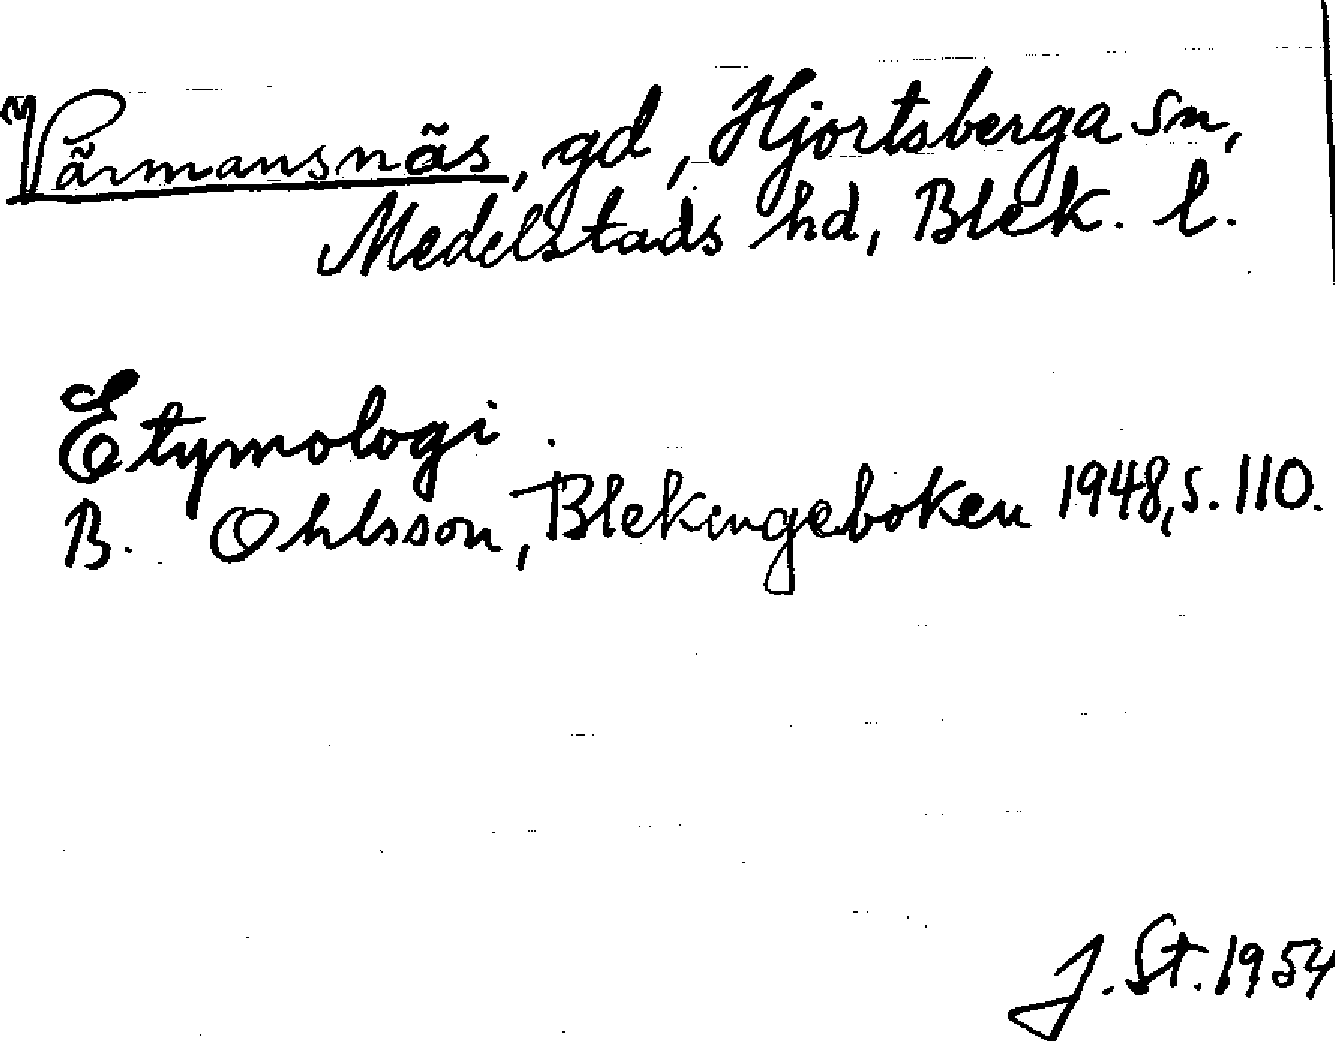 Värmansnäs, gd, Hjortsberga sn,
Medelstads hd, Blek. l.
Etymologi.
B. Ohlsson, Blekingeboken 1948, s. 110.
J. St. 1954